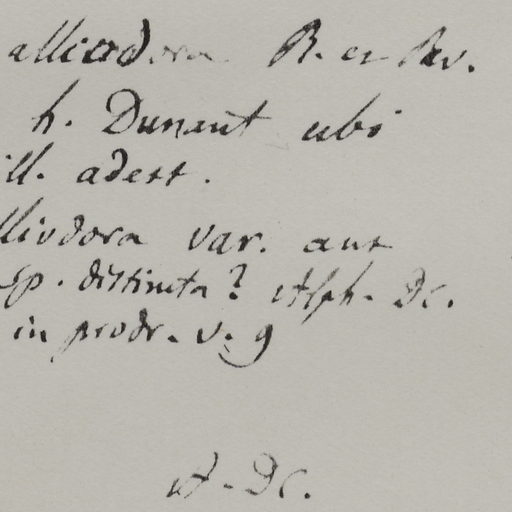 alliodora R. et Pav.
h. Dunant ubi
ill. adest.
lliodora var. aut
sp. distincta? Alph. DC.
in prodr. v. 9
A. DC.